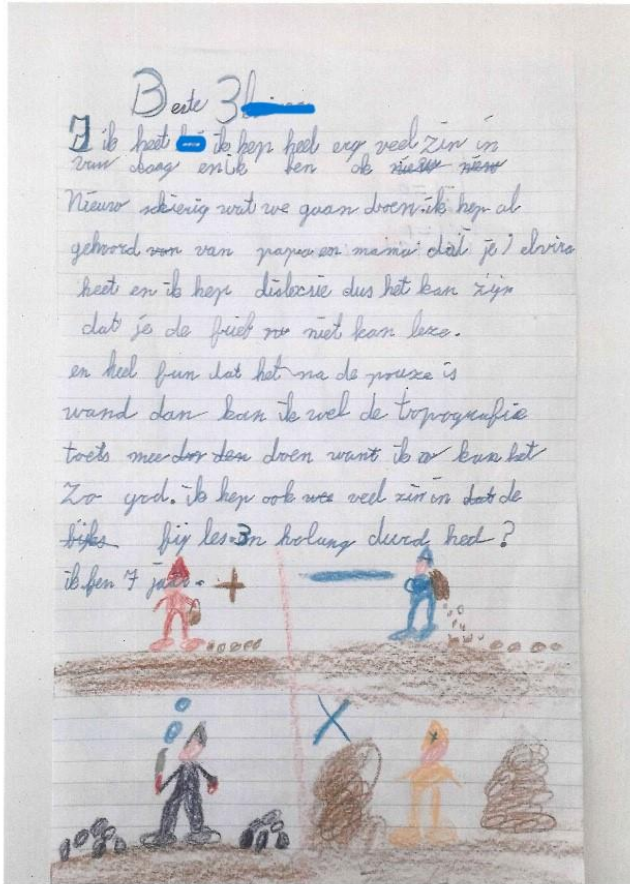 Beste
ik heet ik hep heel erg veel zin in
van daag en ik ben ok
Nieuw schierig wat we gaan doen. ik hep al
gehoord van van papa en mama dat je elvira
heet en ik hep dislecsie dus het kan zijn
dat je de brief niet kan leze.
en heel fun dat het na de pouze is
wand dan kan ik wel de topografie
toets mee doen want ik kan het
Zo god. ik hep ook veel zin in de
bij les. En holang durd hed?
ik ben 7 jaar.
+
X